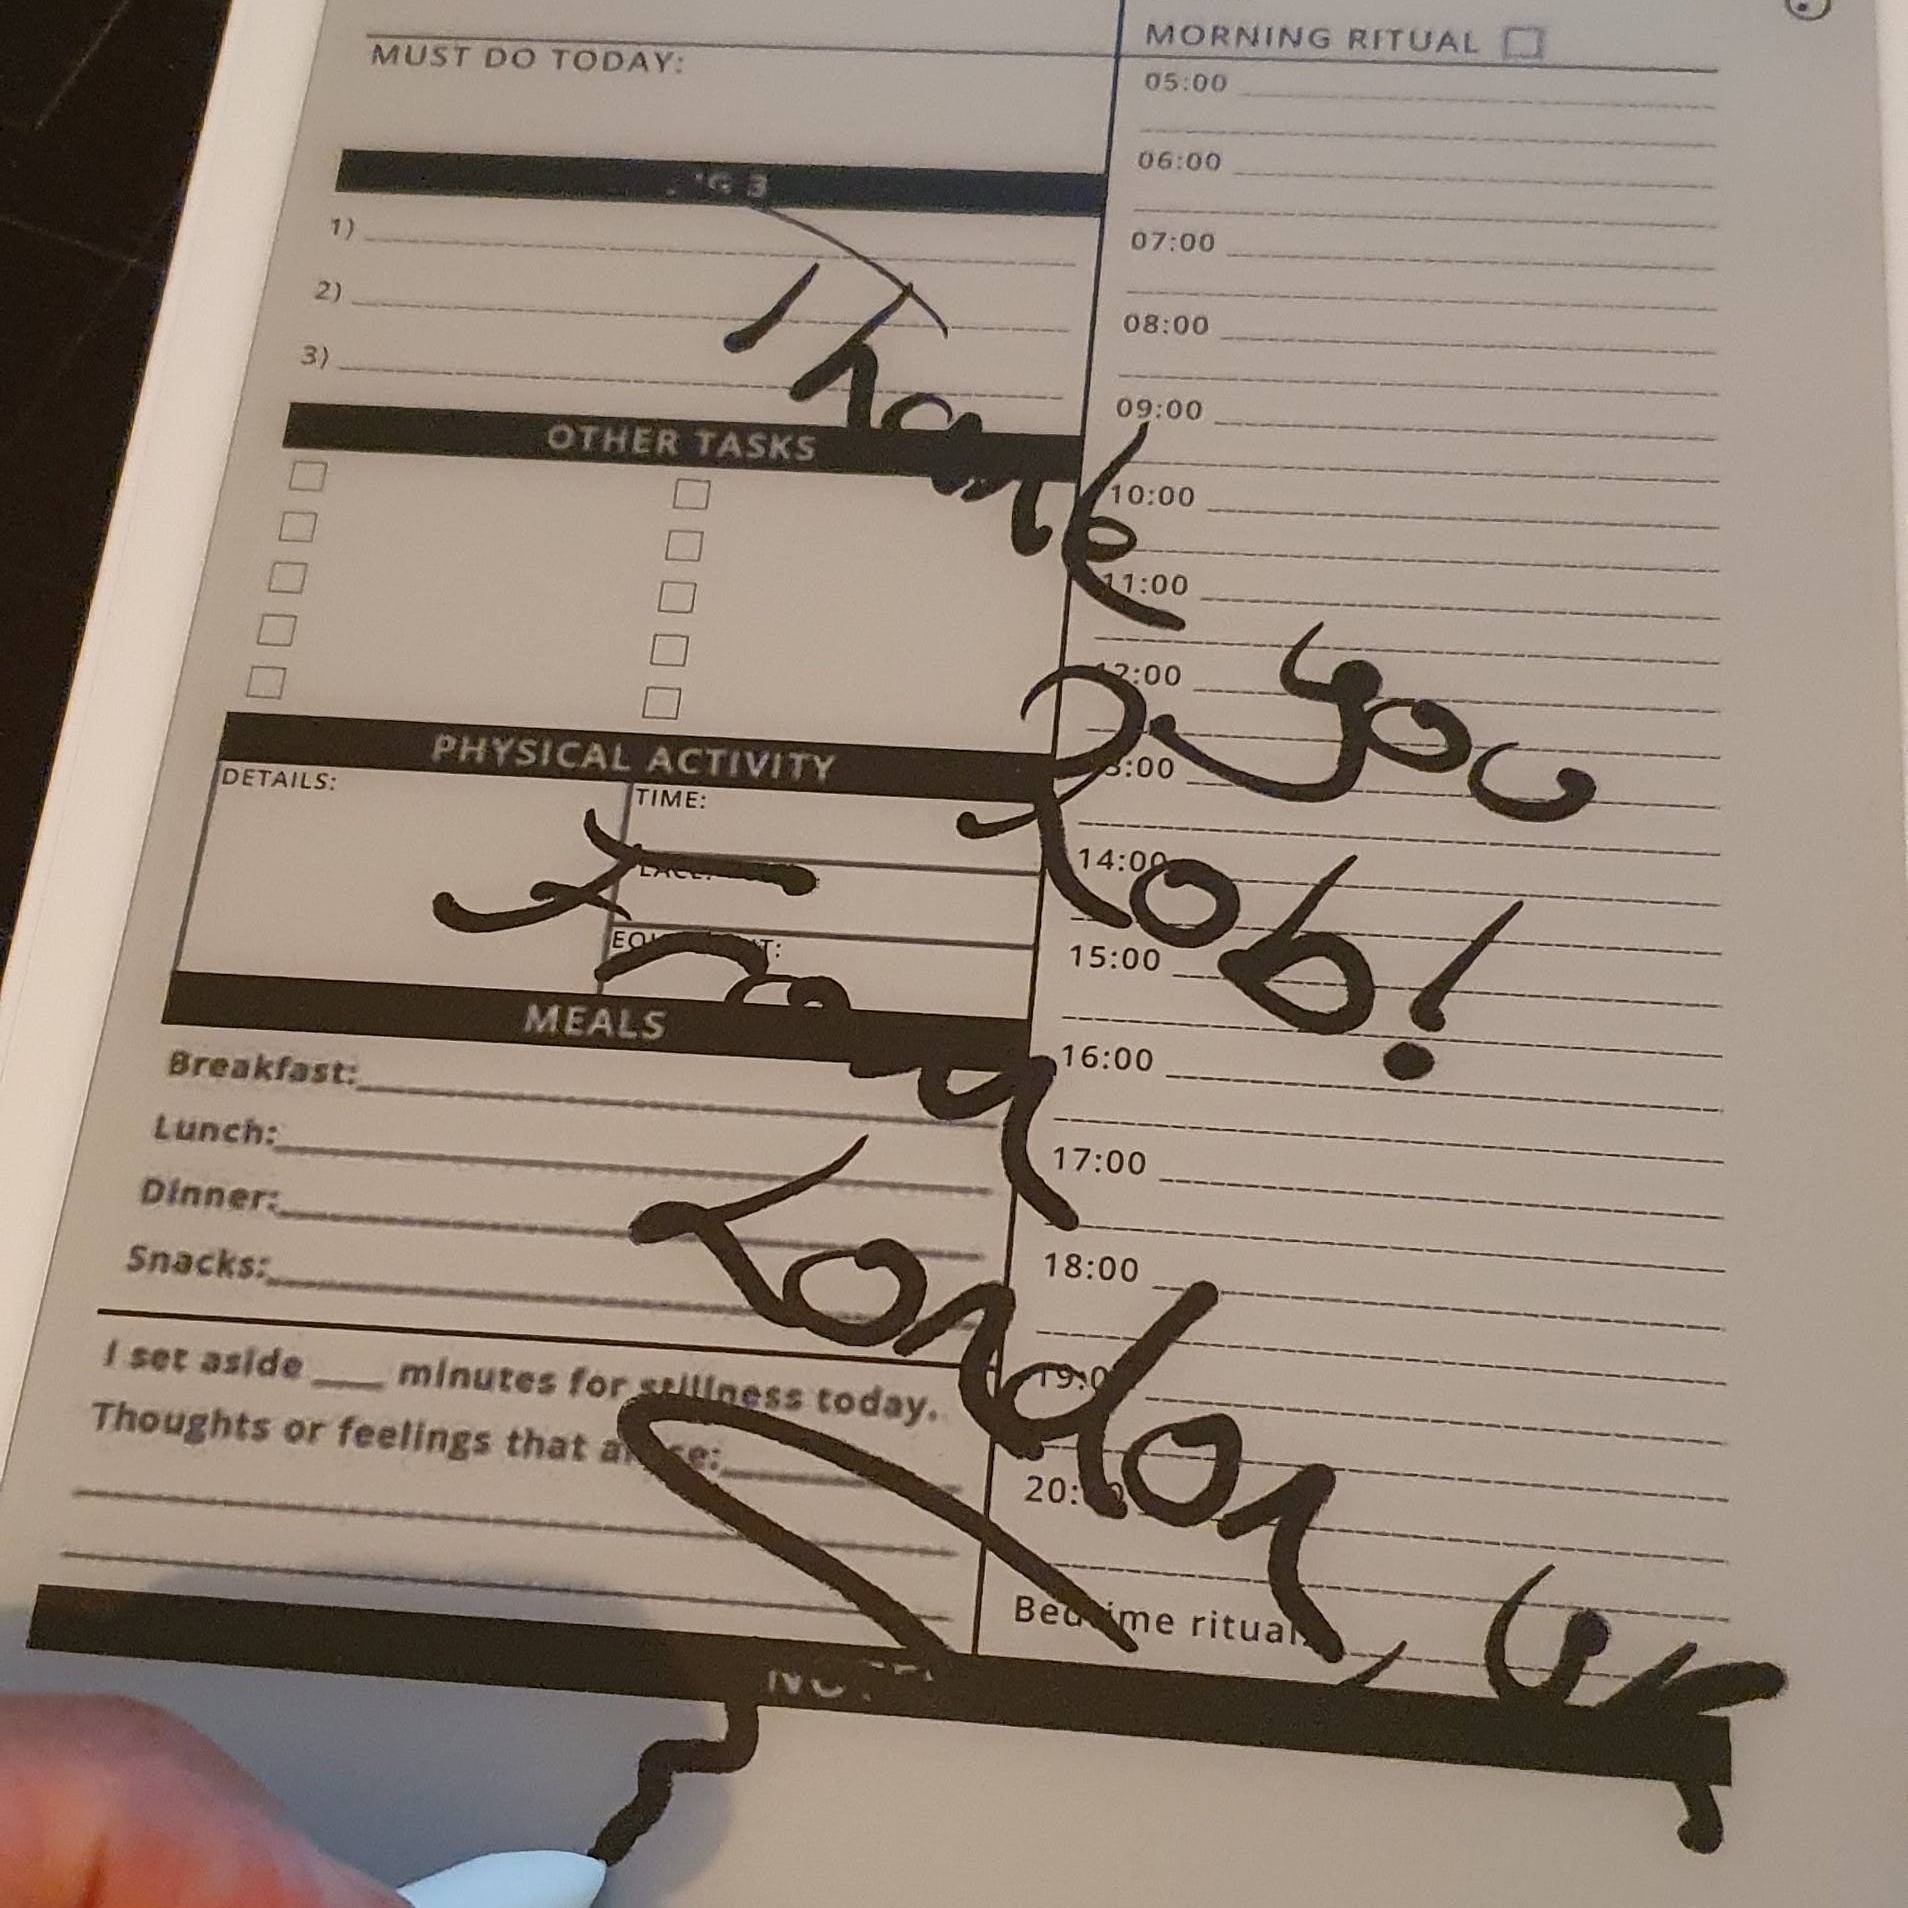 MUST DO TODAY:
1)
2)
3)
OTHER TASKS
PHYSICAL ACTIVITY
DETAILS:
TIME:
MEALS
Breakfast:
Lunch:
Dinner:
Snacks:
I set aside ___ minutes for stillness today.
Thoughts or feelings that
MORNING RITUAL
05:00
06:00
07:00
08:00
09:00
10:00
11:00
14:00
15:00
16:00
17:00
18:00
Thank you
Rob!
From
London, UK